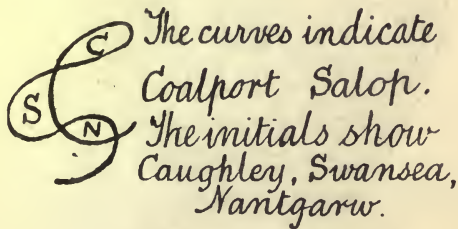 C
The curves indicate
Coalport Salop.
S
N
The initials show
Caughley, Swansea,
Nantgarw.